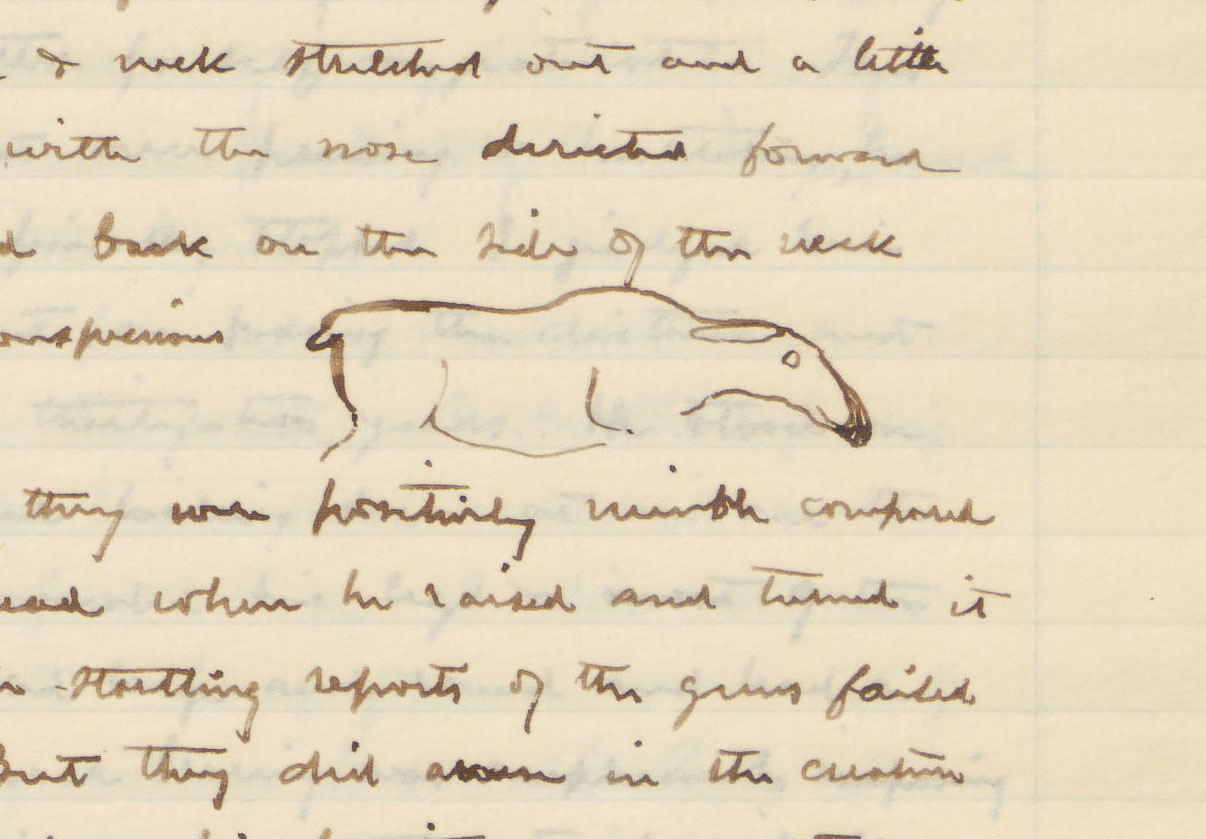 & neck stretched out and a little
with the nose directed forward
back on the side of the neck
conspicuous
they were positively compared
when he raised and turned it
startling reports of the guns failed
But they did in the creature